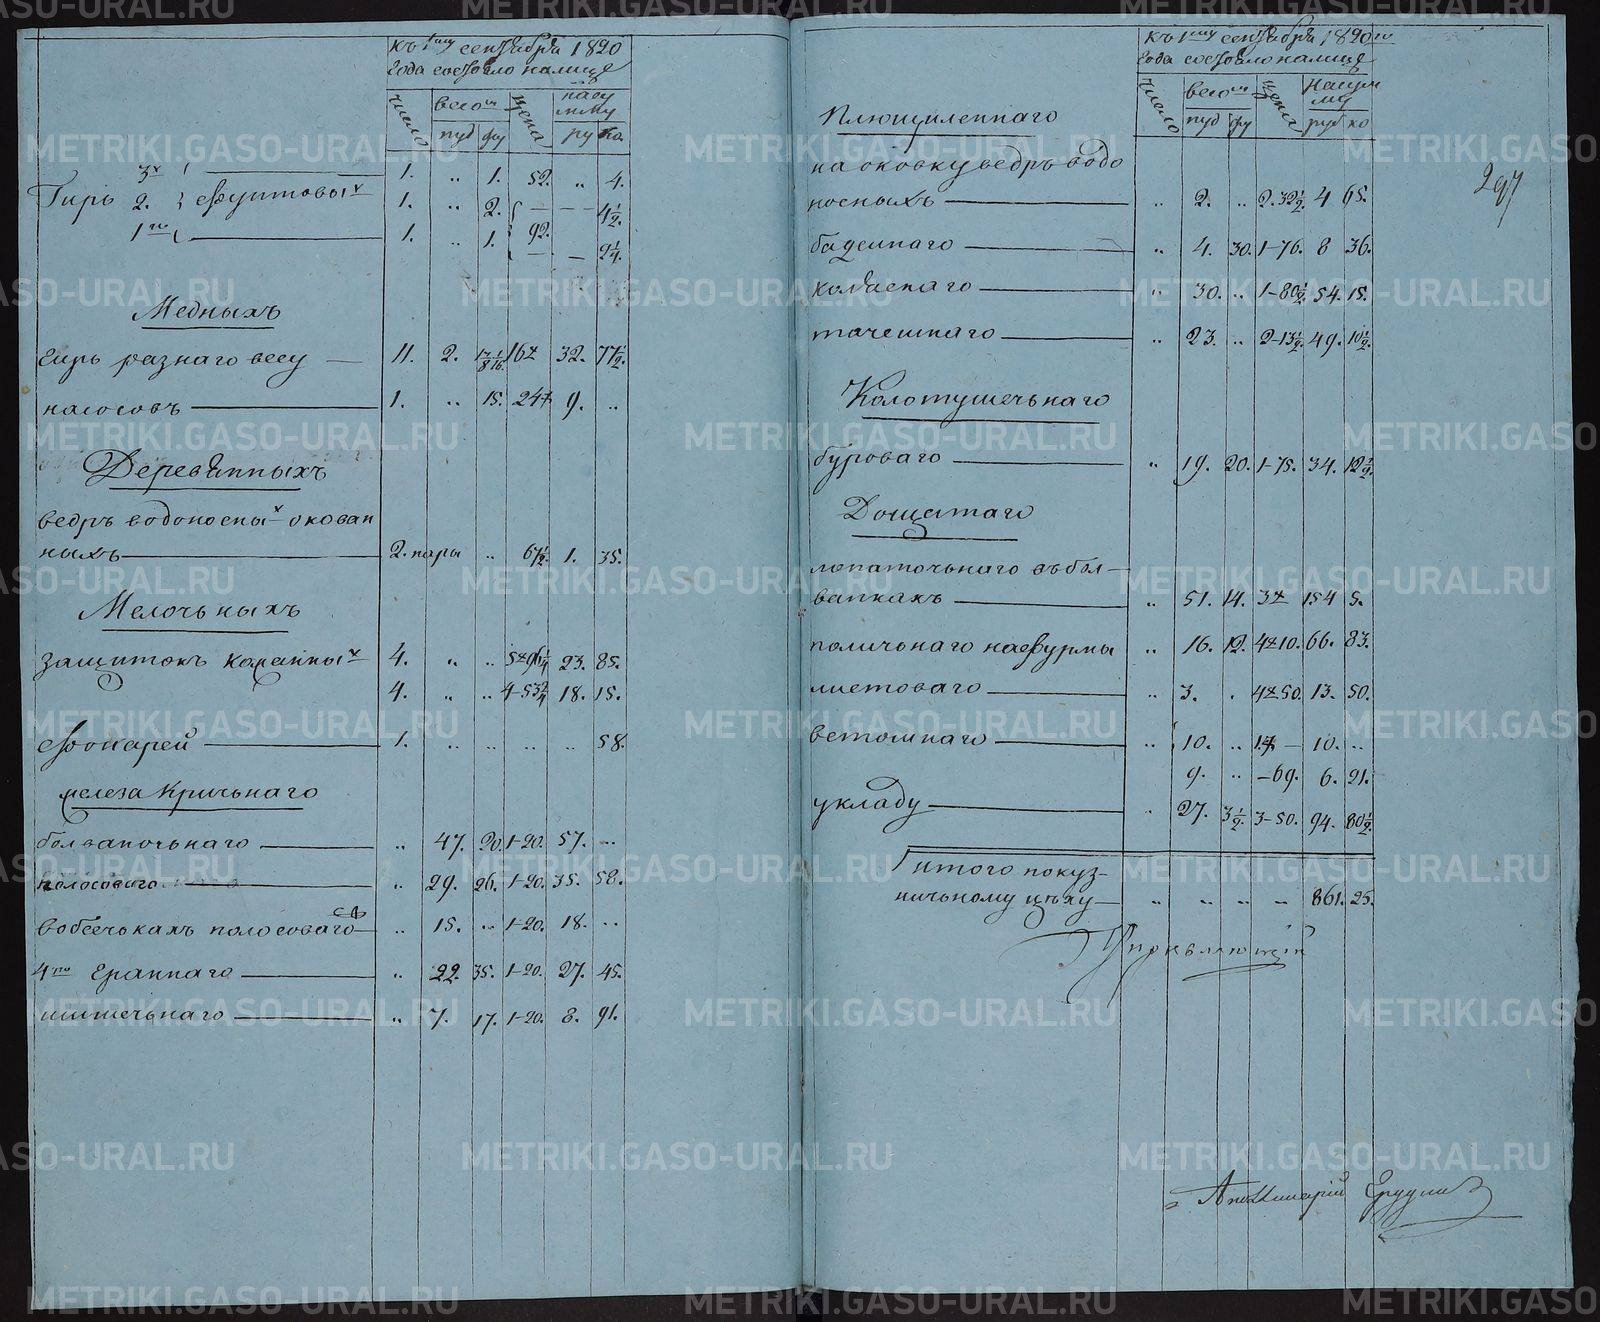 къ 1му сентября 1820
года состояло налицо
число
весомъ
цена
на сумму
пуд фу ру ко.
3х 1. .. 1. 52. .. 4.
Гирь 2. фунтовых 1. .. 2. — — 4½.
1го 1. .. 1. 92. — 2¼.
Медныхъ
гирь разнаго весу — 11. 2. 16 32. 77½.
насосовъ 1. .. 15. 24 9. ..
Деревянныхъ
ведръ водоносных окован
ныхъ 2. пары .. 67½. 1. 35.
Мелочьныхъ
защитокъ каменных 4. .. .. 5 96¼ 23. 85.
4. .. .. 4-53¾ 18. 15.
фонарей 1. .. .. .. .. 58.
железа Кричьнаго
болваночьнаго .. 47. 20. 1-20. 57. ...
полосоваго .. 29. 26. 1-20. 35. 58.
вобсечькахъ полосоваго .. 15. .. 1-20. 18. ..
4го браннаго .. 22. 35. 1-20. 27. 45.
шинтельнаго .. 7. 17. 1-20. 8. 91.
къ 1му сентября 1820го
года состояло налицо
число
весомъ
цена
на сумму
пуд фу руб ко
297
Плющиленнаго
на оковку ведръ водо
носныхъ .. 2. .. 2.32½ 4 65.
бадейнаго .. 4. 30. 1-76. 8 36.
колеснаго .. 30. .. 1-80½. 54. 15.
тачешнаго .. 23. .. 2-13½. 49. 10½.
Колотушечьнаго
буроваго .. 19. 20. 1-75. 34. 12½
Дощатаго
лопаточьнаго въ бол-
ванкахъ .. 51. 14. 3 154 5.
поличьнаго на фурмы .. 16. 12. 4 10. 66. 83.
листоваго .. 3. . 4 50. 13. 50.
ветошнаго .. 10. .. 1 — 10. ..
9. .. -69. 6. 21.
укладу .. 27. 3½. 3-50. 94. 80½.
итого по куз-
ничьному цеху .. .. .. .. 861. 25.
Управляющий
METRIKI.GASO-URAL.RU